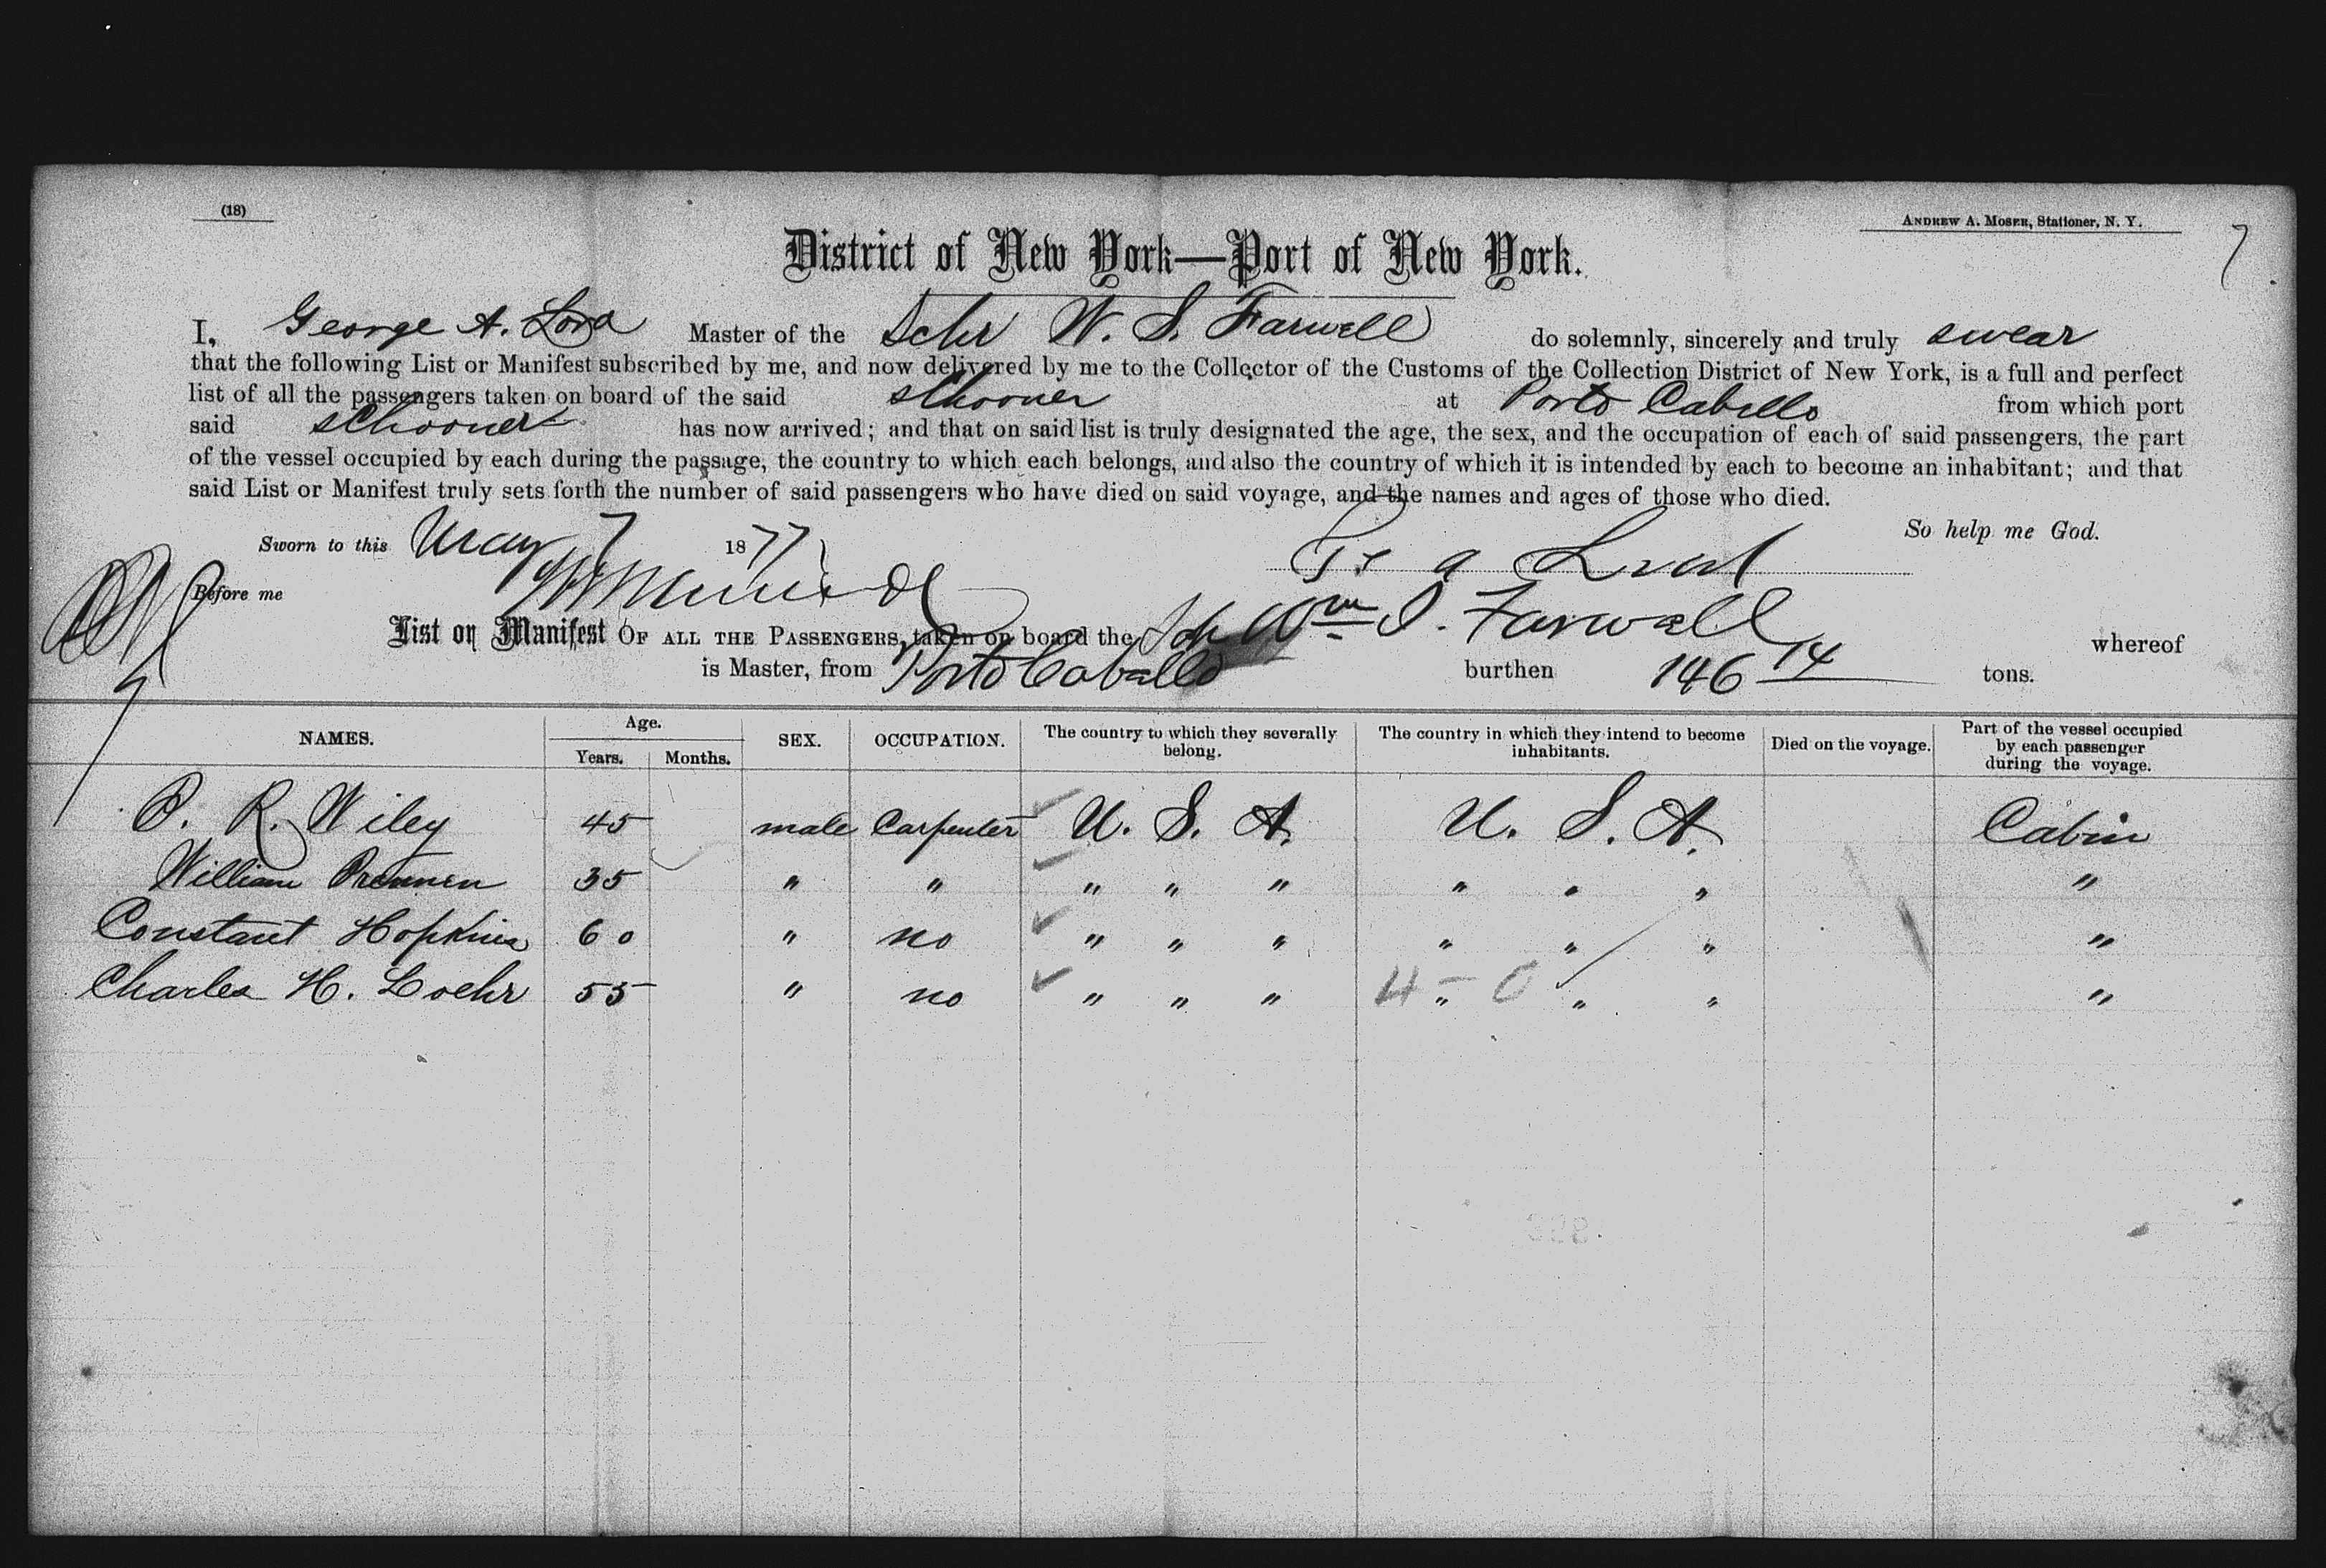 (18)
ANDREW A. MOSER, Stationer, N. Y.
7
District of New York—Port of New York.
I, George A. Lord Master of the Schr W. S. Farwell do solemnly, sincerely and truly swear
that the following List or Manifest subscribed by me, and now delivered by me to the Collector of the Customs of the Collection District of New York, is a full and perfect
list of all the passengers taken on board of the said schooner at Porto Cabello from which port
said schooner has now arrived; and that on said list is truly designated the age, the sex, and the occupation of each of said passengers, the part
of the vessel occupied by each during the passage, the country to which each belongs, and also the country of which it is intended by each to become an inhabitant; and that
said List or Manifest truly sets forth the number of said passengers who have died on said voyage, and the names and ages of those who died.
So help me God.
Sworn to this May 7 1877
a Lord
Before me
List or Manifest OF ALL THE PASSENGERS, taken on board the Sch Wm S. Farwell whereof
is Master, from Porto Caballo burthen 146 14 tons.
NAMES. Age. Years. Months. SEX. OCCUPATION. The country to which they severally belong. The country in which they intend to become inhabitants. Died on the voyage. Part of the vessel occupied by each passenger during the voyage.
P. R. Wiley 45 male Carpenter U. S. A. U. S. A. Cabin
William 35 " " " " " " " " "
Constant Hopkins 60 " no " " " " " " "
Charles H. Loehr 55 " no " " " " " " "
4 - 0